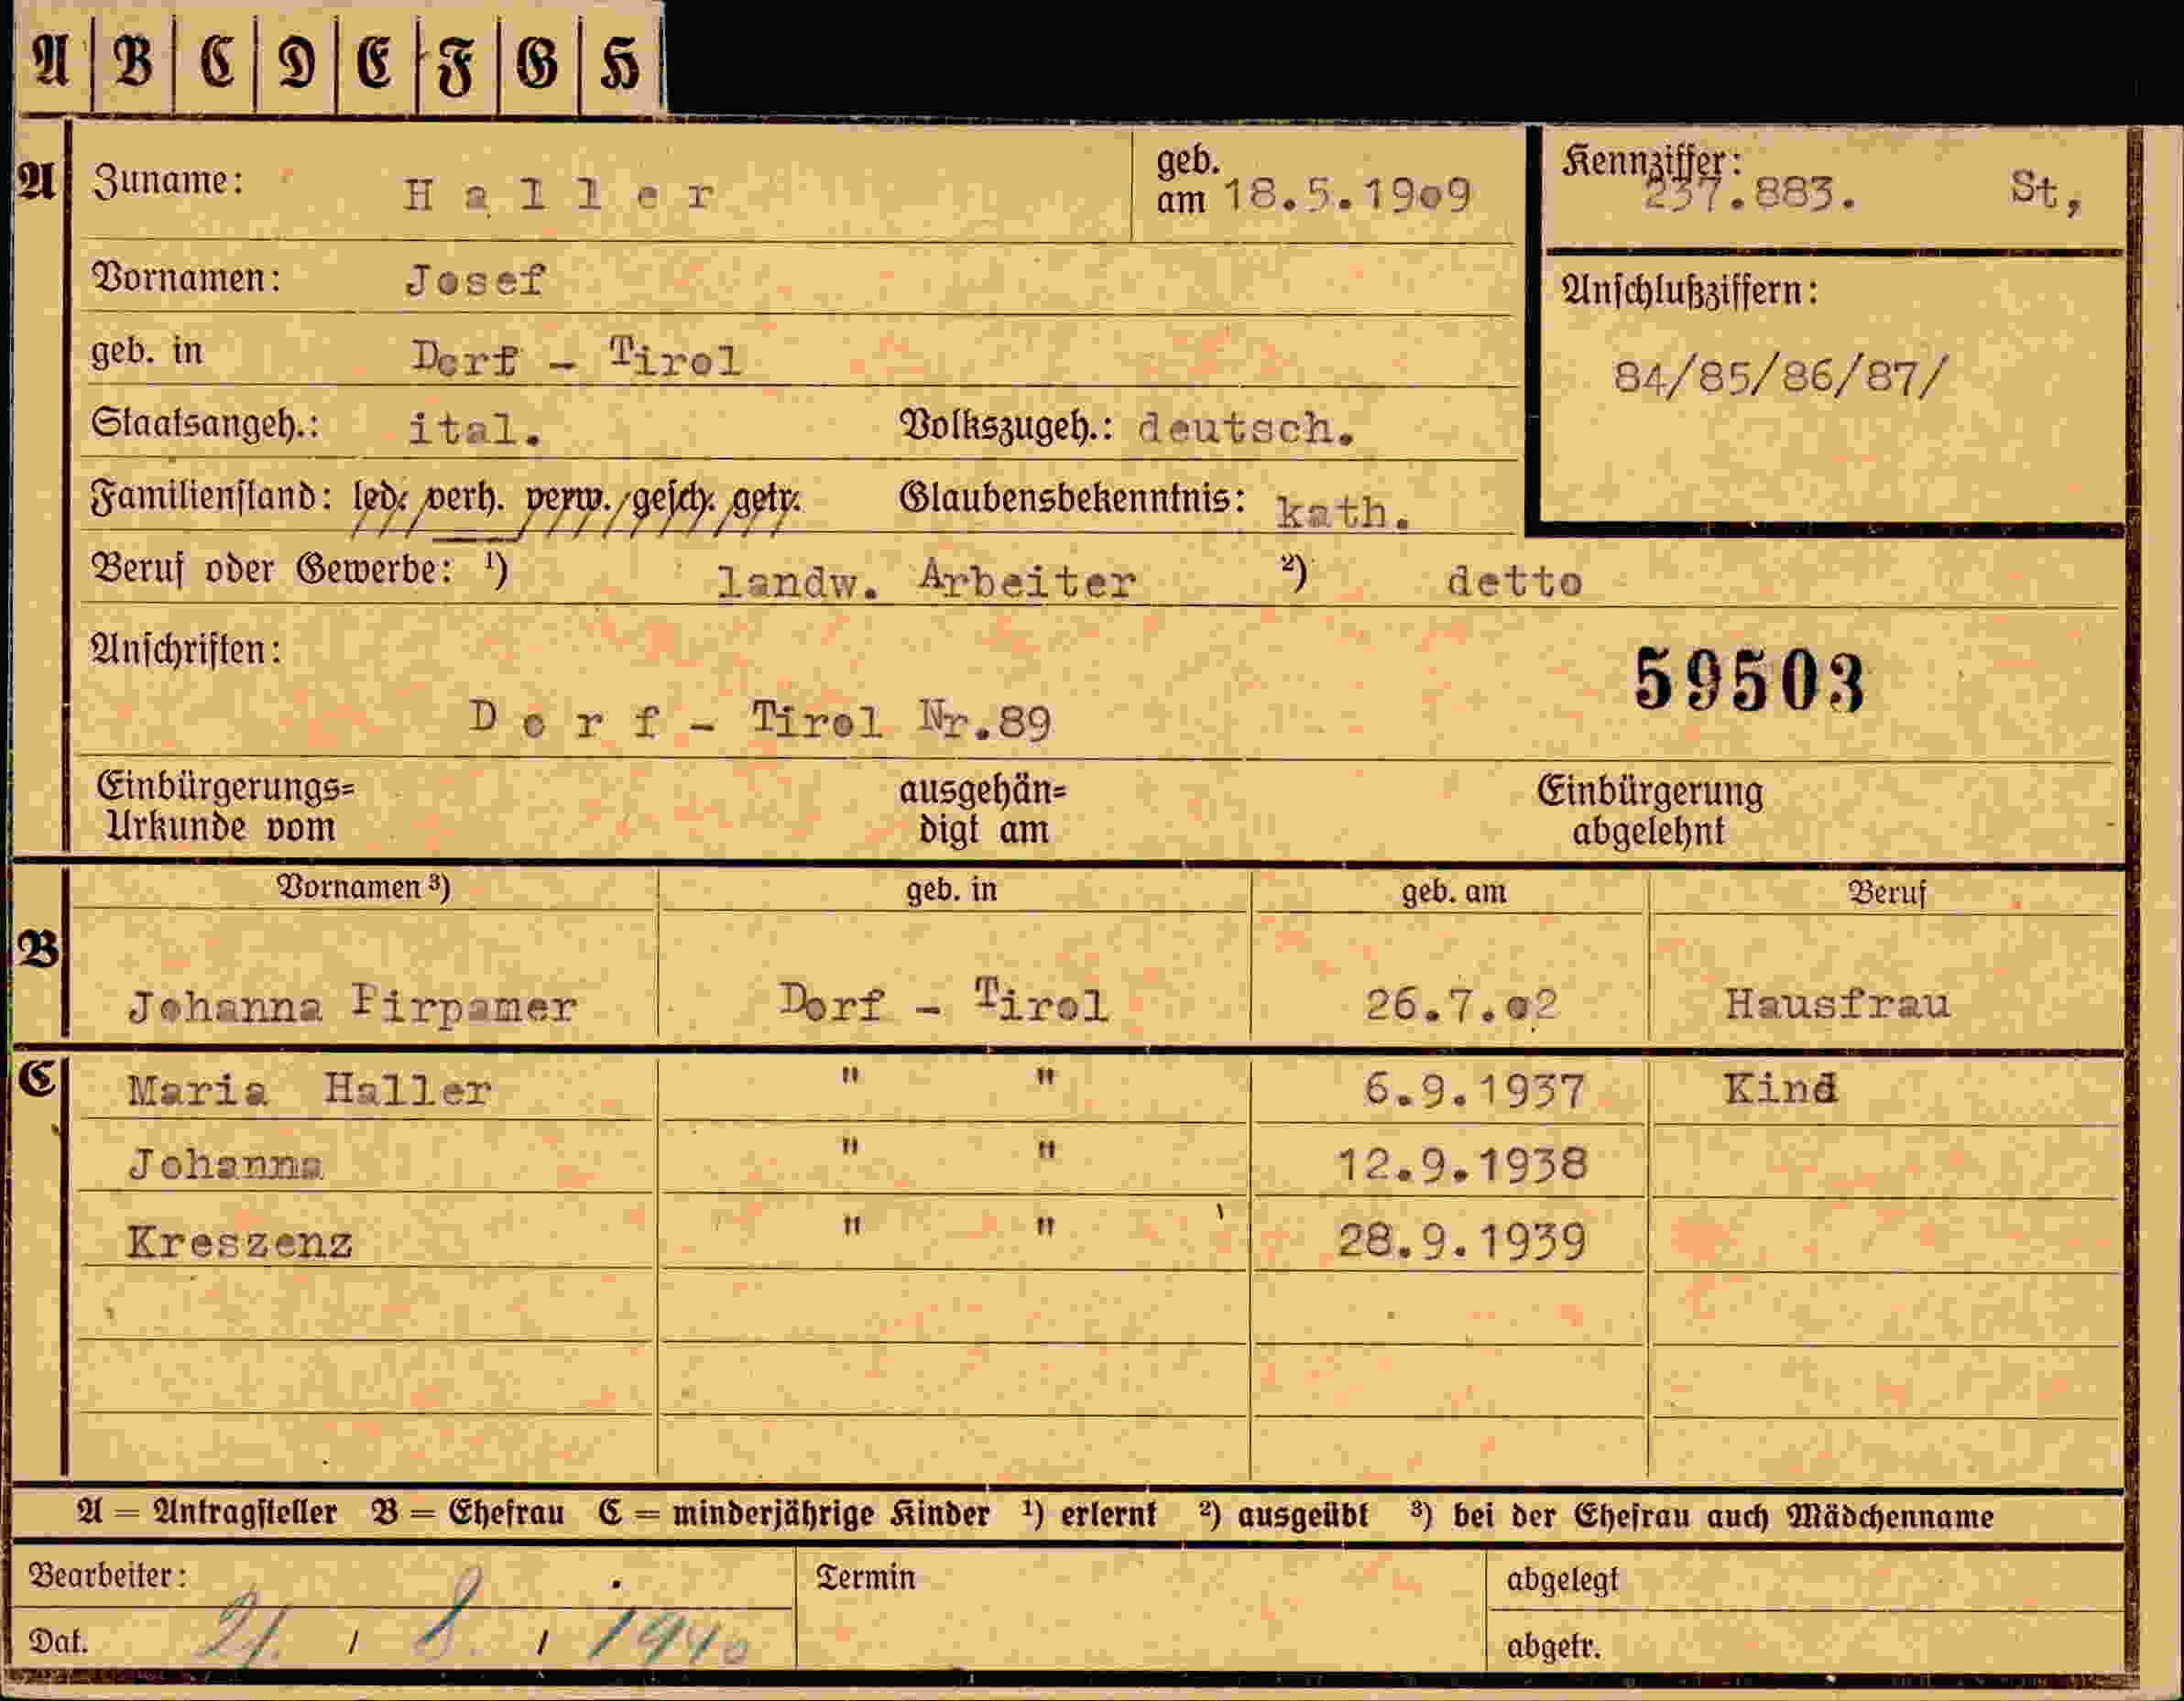 A B C D E F G H
A Zuname: Haller geb. am 18.5.1909 Kennziffer: 237.883. St,
Vornamen: Josef
Anschlußziffern:
geb. in Dorf - Tirol
84/85/86/87/
Staatsangeh.: ital. Volkszugeh.: deutsch.
Familienstand: led. verh. verw. gesch. getr. Glaubensbekenntnis: kath.
Beruf oder Gewerbe: ¹) landw. Arbeiter ²) detto
Anschriften:
59503
Dorf - Tirol Nr.89
Einbürgerungs= ausgehän= Einbürgerung
Urkunde vom digt am abgelehnt
Vornamen ³) geb. in geb. am Beruf
B
Johanna Pirpamer Dorf - Tirol 26.7.02 Hausfrau
C Maria Haller " " 6.9.1937 Kind
Johanna " " 12.9.1938
Kreszenz " " 28.9.1939
A = Antragsteller B = Ehefrau C = minderjährige Kinder ¹) erlernt ²) ausgeübt ³) bei der Ehefrau auch Mädchenname
Bearbeiter: Termin abgelegt
Dat. 21. / 8. / 1940 abgetr.